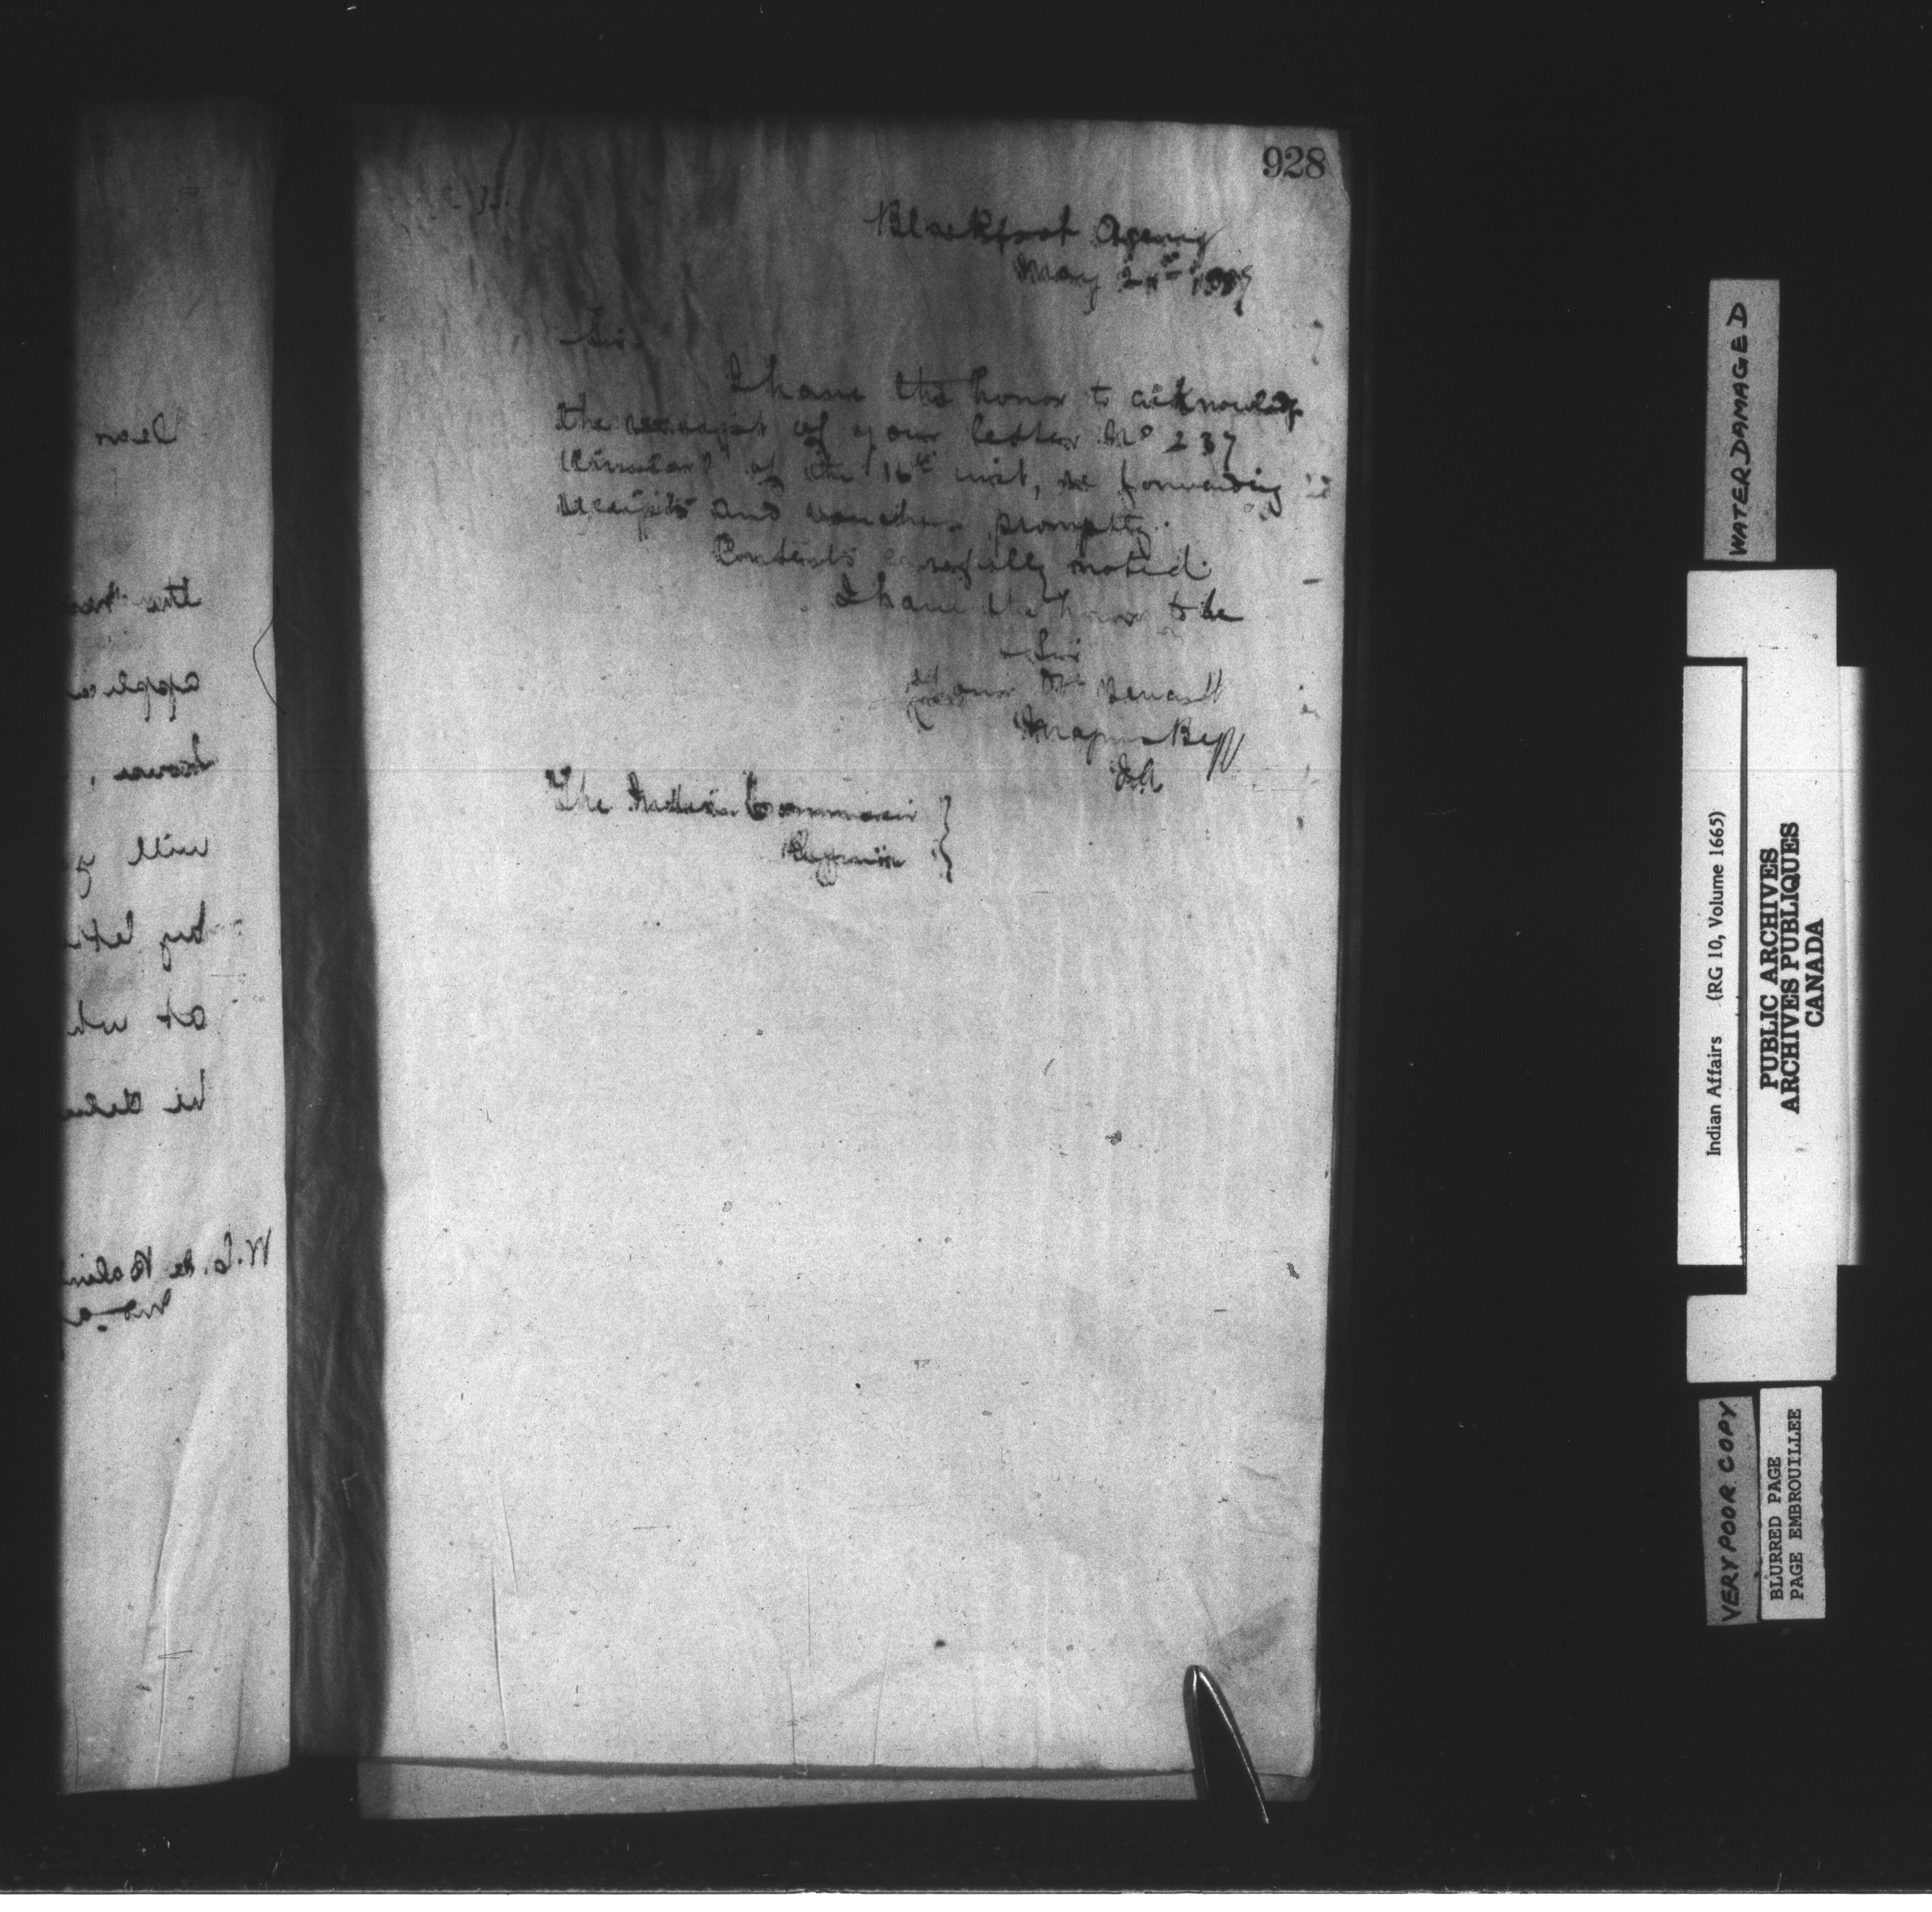 928
Blackfoot Agency
May 21st 1887
Sir,
I have the honor to acknowledge
the receipt of your letter No 237
"Circular" of the 16th inst, re forwarding
receipts and vouchers promptly.
Contents carefully noted.
I have the honor to be
Sir
Your Obt Servant
Magnus Begg
I.A.
The Indian Commissioner
Regina
Dear
the
will
by
at
be
W.C. de Balin
WATER DAMAGED
Indian Affairs (RG 10, Volume 1665)
PUBLIC ARCHIVES
ARCHIVES PUBLIQUES
CANADA
VERY POOR COPY
BLURRED PAGE
PAGE EMBROUILLEE